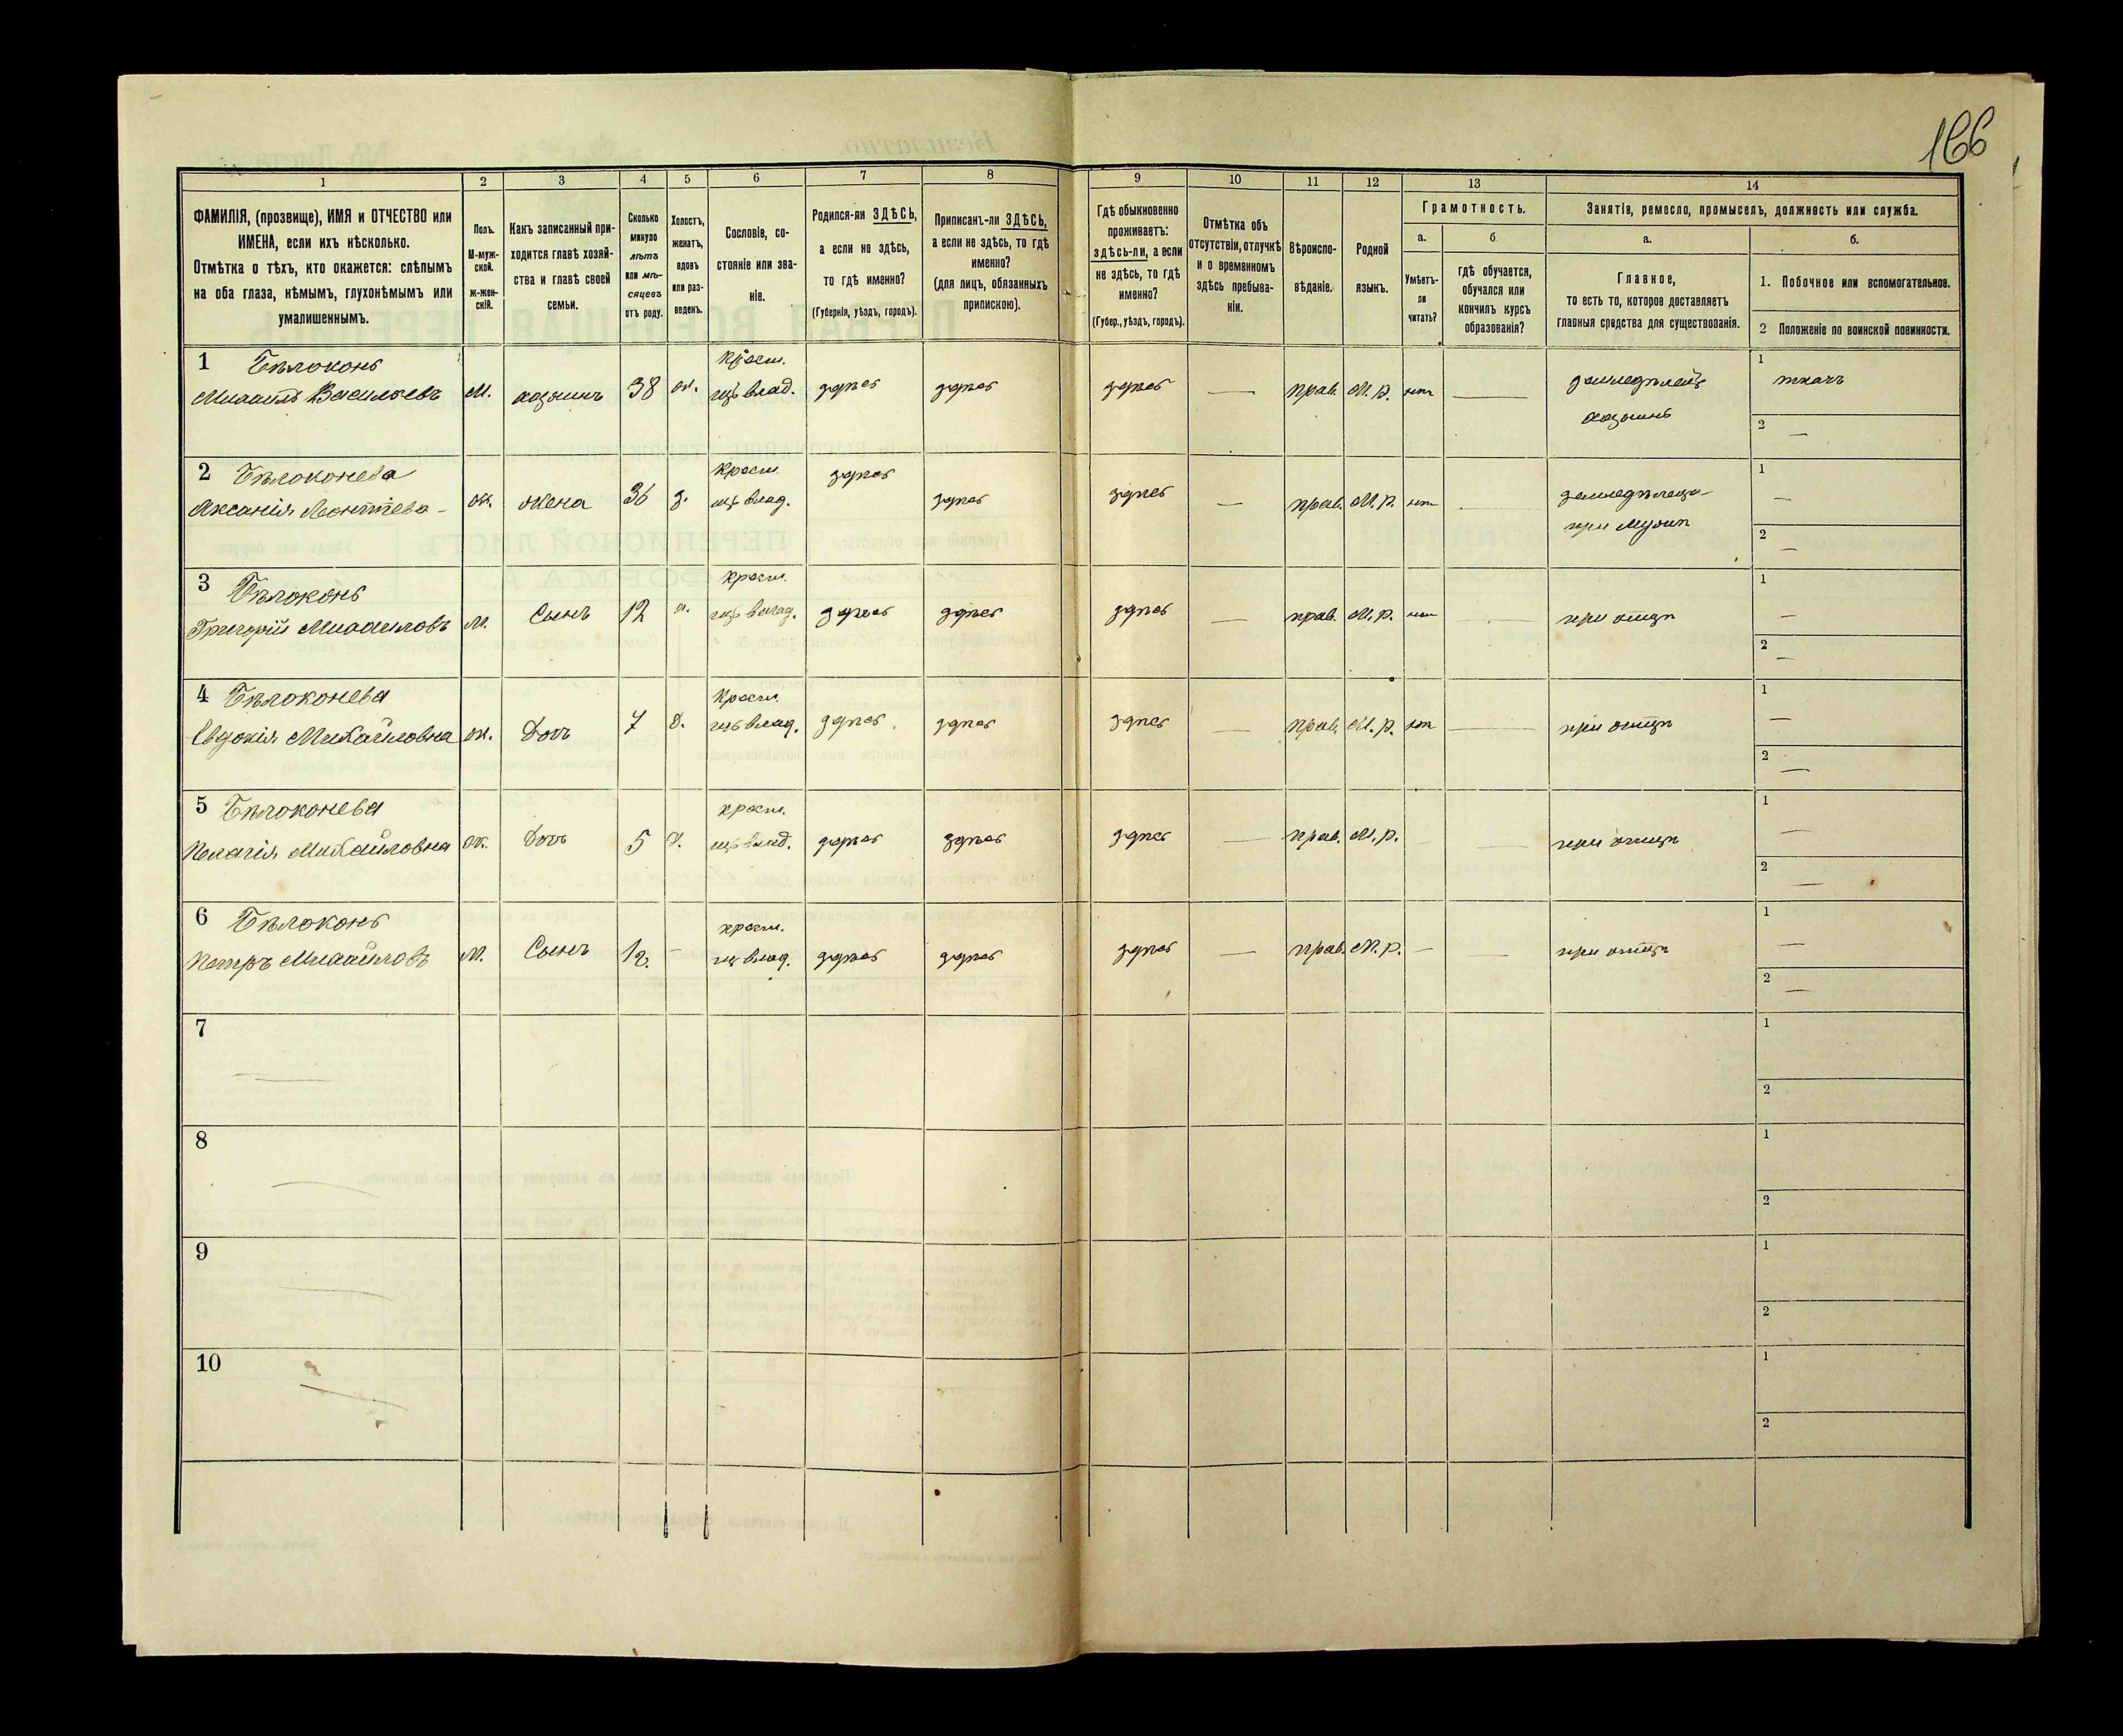 166
1 2 3 4 5 6 7 8 9 10 11 12 13 14
ФАМИЛІЯ, (прозвище), ИМЯ и ОТЧЕСТВО или
ИМЕНА, если ихъ нѣсколько.
Отмѣтка о тѣхъ, кто окажется: слѣпымъ
на оба глаза, нѣмымъ, глухонѣмымъ или
умалишеннымъ.
Полъ.
М-муж-
ской.
Ж-жен-
скій.
Какъ записанный при-
ходится главѣ хозяй-
ства и главѣ своей
семьи.
Сколько
минуло
лѣтъ
или мѣ-
сяцевъ
отъ роду.
Холостъ,
женатъ,
вдовъ
или раз-
веденъ.
Сословіе, со-
стояніе или зва-
ніе.
Родился-ли ЗДѢСЬ,
а если не здѣсь,
то гдѣ именно?
(Губернія, уѣздъ, городъ).
Приписанъ-ли ЗДѢСЬ,
а если не здѣсь, то гдѣ
именно?
(для лицъ, обязанныхъ
припискою).
Гдѣ обыкновенно
проживаетъ:
здѣсь-ли, а если
не здѣсь, то гдѣ
именно?
(Губер., уѣздъ, городъ).
Отмѣтка объ
отсутствіи, отлучкѣ
и о временномъ
здѣсь пребыва-
ніи.
Вѣроиспо-
вѣданіе.
Родной
языкъ.
Грамотность.
а.
Умѣетъ-
ли
читать?
б
гдѣ обучается,
обучался или
кончилъ курсъ
образованія?
Занятіе, ремесло, промыселъ, должность или служба.
а.
Главное,
то есть то, которое доставляетъ
главныя средства для существованія.
б.
1. Побочное или вспомогательное.
2 Положеніе по воинской повинности.
1 Бѣлоконь крест. 1
Михаилъ Васильевъ М. хозяинъ 38 ж. влад. здѣсь здѣсь здѣсь — прав. М. р. нѣт — ткачъ
хозяинъ 2 —
2 Бѣлоконева крест. здѣсь 1
Аксанія Леонтіева ж. жена 36 з. влад. здѣсь здѣсь — прав. М. р. нѣт — —
при мужѣ 2 —
3 Бѣлоконь крест. 1
Григорій Михаиловъ М. Сынъ 12 х. влад. здѣсь здѣсь здѣсь — прав. М. р. нѣт — при отцѣ —
2 —
4 Бѣлоконева крест. 1
Евдокія Михайловна ж. Дочь 7 д. влад. здѣсь здѣсь здѣсь — прав. М. р. нѣт — при отцѣ —
2 —
5 Бѣлоконева крест. 1
Пелагія Михайловна ж. Дочь 5 д. влад. здѣсь здѣсь здѣсь — прав. М. р. — — при отцѣ —
2 —
6 Бѣлоконь крест. 1
Петръ Михайловъ М. Сынъ — влад. здѣсь здѣсь здѣсь — прав. М. р. — при отцѣ —
2 —
7 1
2
8 1
2
9 1
2
10 1
2